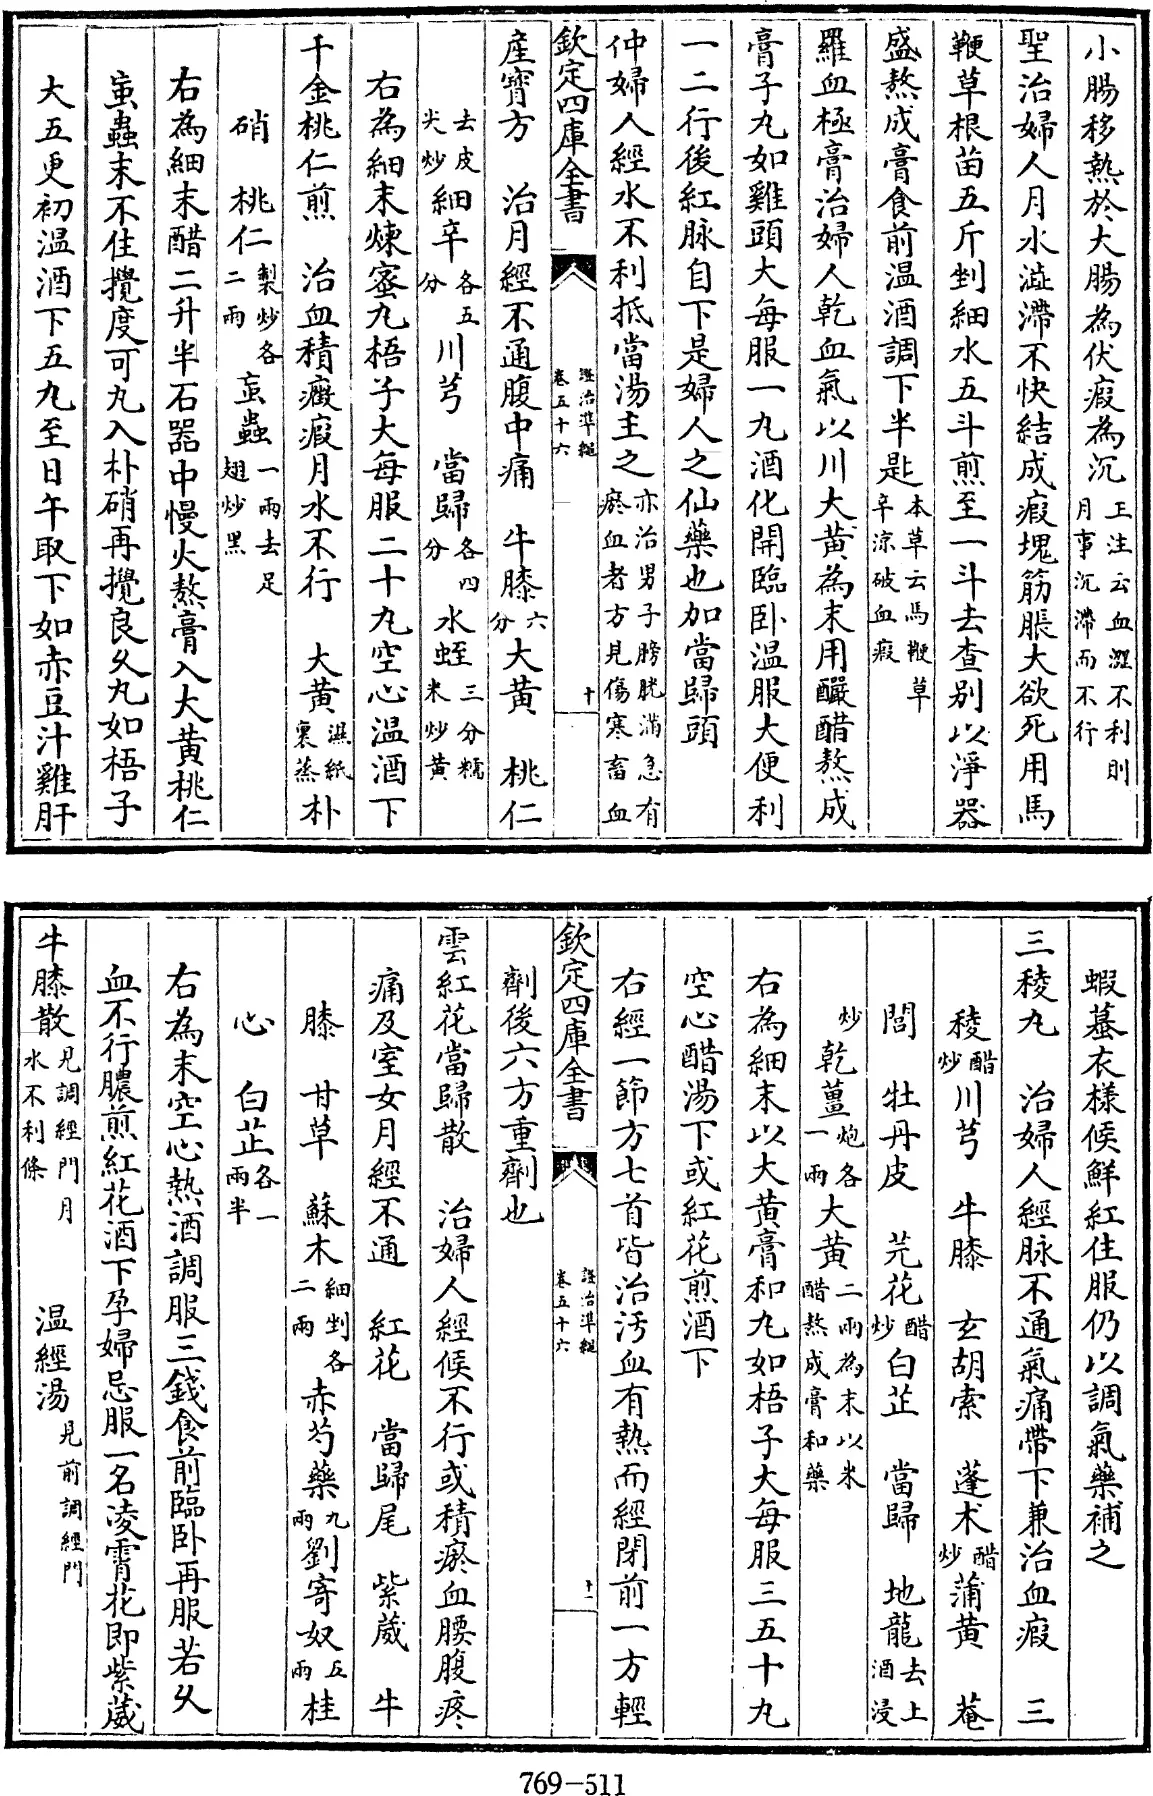 小腸移熱於大腸為伏瘕為沉王注云血澀不利則月事沉滯而不行
聖治婦人月水澁滯不快結成瘕塊筋脹大欲死用馬
鞭草根苗五斤剉細水五斗煎至一斗去查别以淨器
盛熬成膏食前温酒調下半匙本草云馬鞭草辛涼破血瘕
羅血極膏治婦人乾血氣以川大黄為末用釅醋熬成
膏子丸如雞頭大每服一丸酒化開臨卧温服大便利
一二行後紅脉自下是婦人之仙藥也加當歸頭
仲婦人經水不利抵當湯主之亦治男子膀胱滿急有瘀血者方見傷寒畜血
欽定四庫全書 證治準繩卷五十六 十
產寳方 治月經不通腹中痛 牛膝六分大黄 桃仁
去皮尖炒細辛各五分川芎 當歸各四分水蛭三分糯米炒黄
右為細末煉蜜丸梧子大每服二十丸空心温酒下
千金桃仁煎 治血積癥瘕月水不行 大黄濕紙裹蒸朴
硝 桃仁製炒各二兩䖟蟲一兩去足翅炒黑
右為細末醋二升半石器中慢火熬膏入大黄桃仁
䖟蟲末不住攪度可丸入朴硝再攪良久丸如梧子
大五更初温酒下五丸至日午取下如赤豆汁雞肝
蝦蟇衣様候鮮紅住服仍以調氣藥補之
三稜丸 治婦人經脉不通氣痛帶下兼治血瘕 三
稜醋炒川芎 牛膝 玄胡索 蓬术醋炒蒲黄 菴
䕡 牡丹皮 芫花醋炒白芷 當歸 地龍去上酒浸
炒乾薑炮各一兩大黄二兩為末以米醋熬成膏和藥
右為細末以大黄膏和丸如梧子大每服三五十丸
空心醋湯下或紅花煎酒下
右經一節方七首皆治污血有熱而經閉前一方輕
欽定四庫全書 證治準繩卷五十六 十一
劑後六方重劑也
雲紅花當歸散 治婦人經候不行或積瘀血腰腹疼
痛及室女月經不通 紅花 當歸尾 紫葳 牛
膝 甘草 蘇木細剉各二兩赤芍藥九兩劉寄奴五兩桂
心 白芷各一兩半
右為末空心熱酒調服三錢食前臨卧再服若久
血不行膿煎紅花酒下孕婦忌服一名凌霄花即紫葳
牛膝散見調經門月水不利條 温經湯見前調經門
769-511